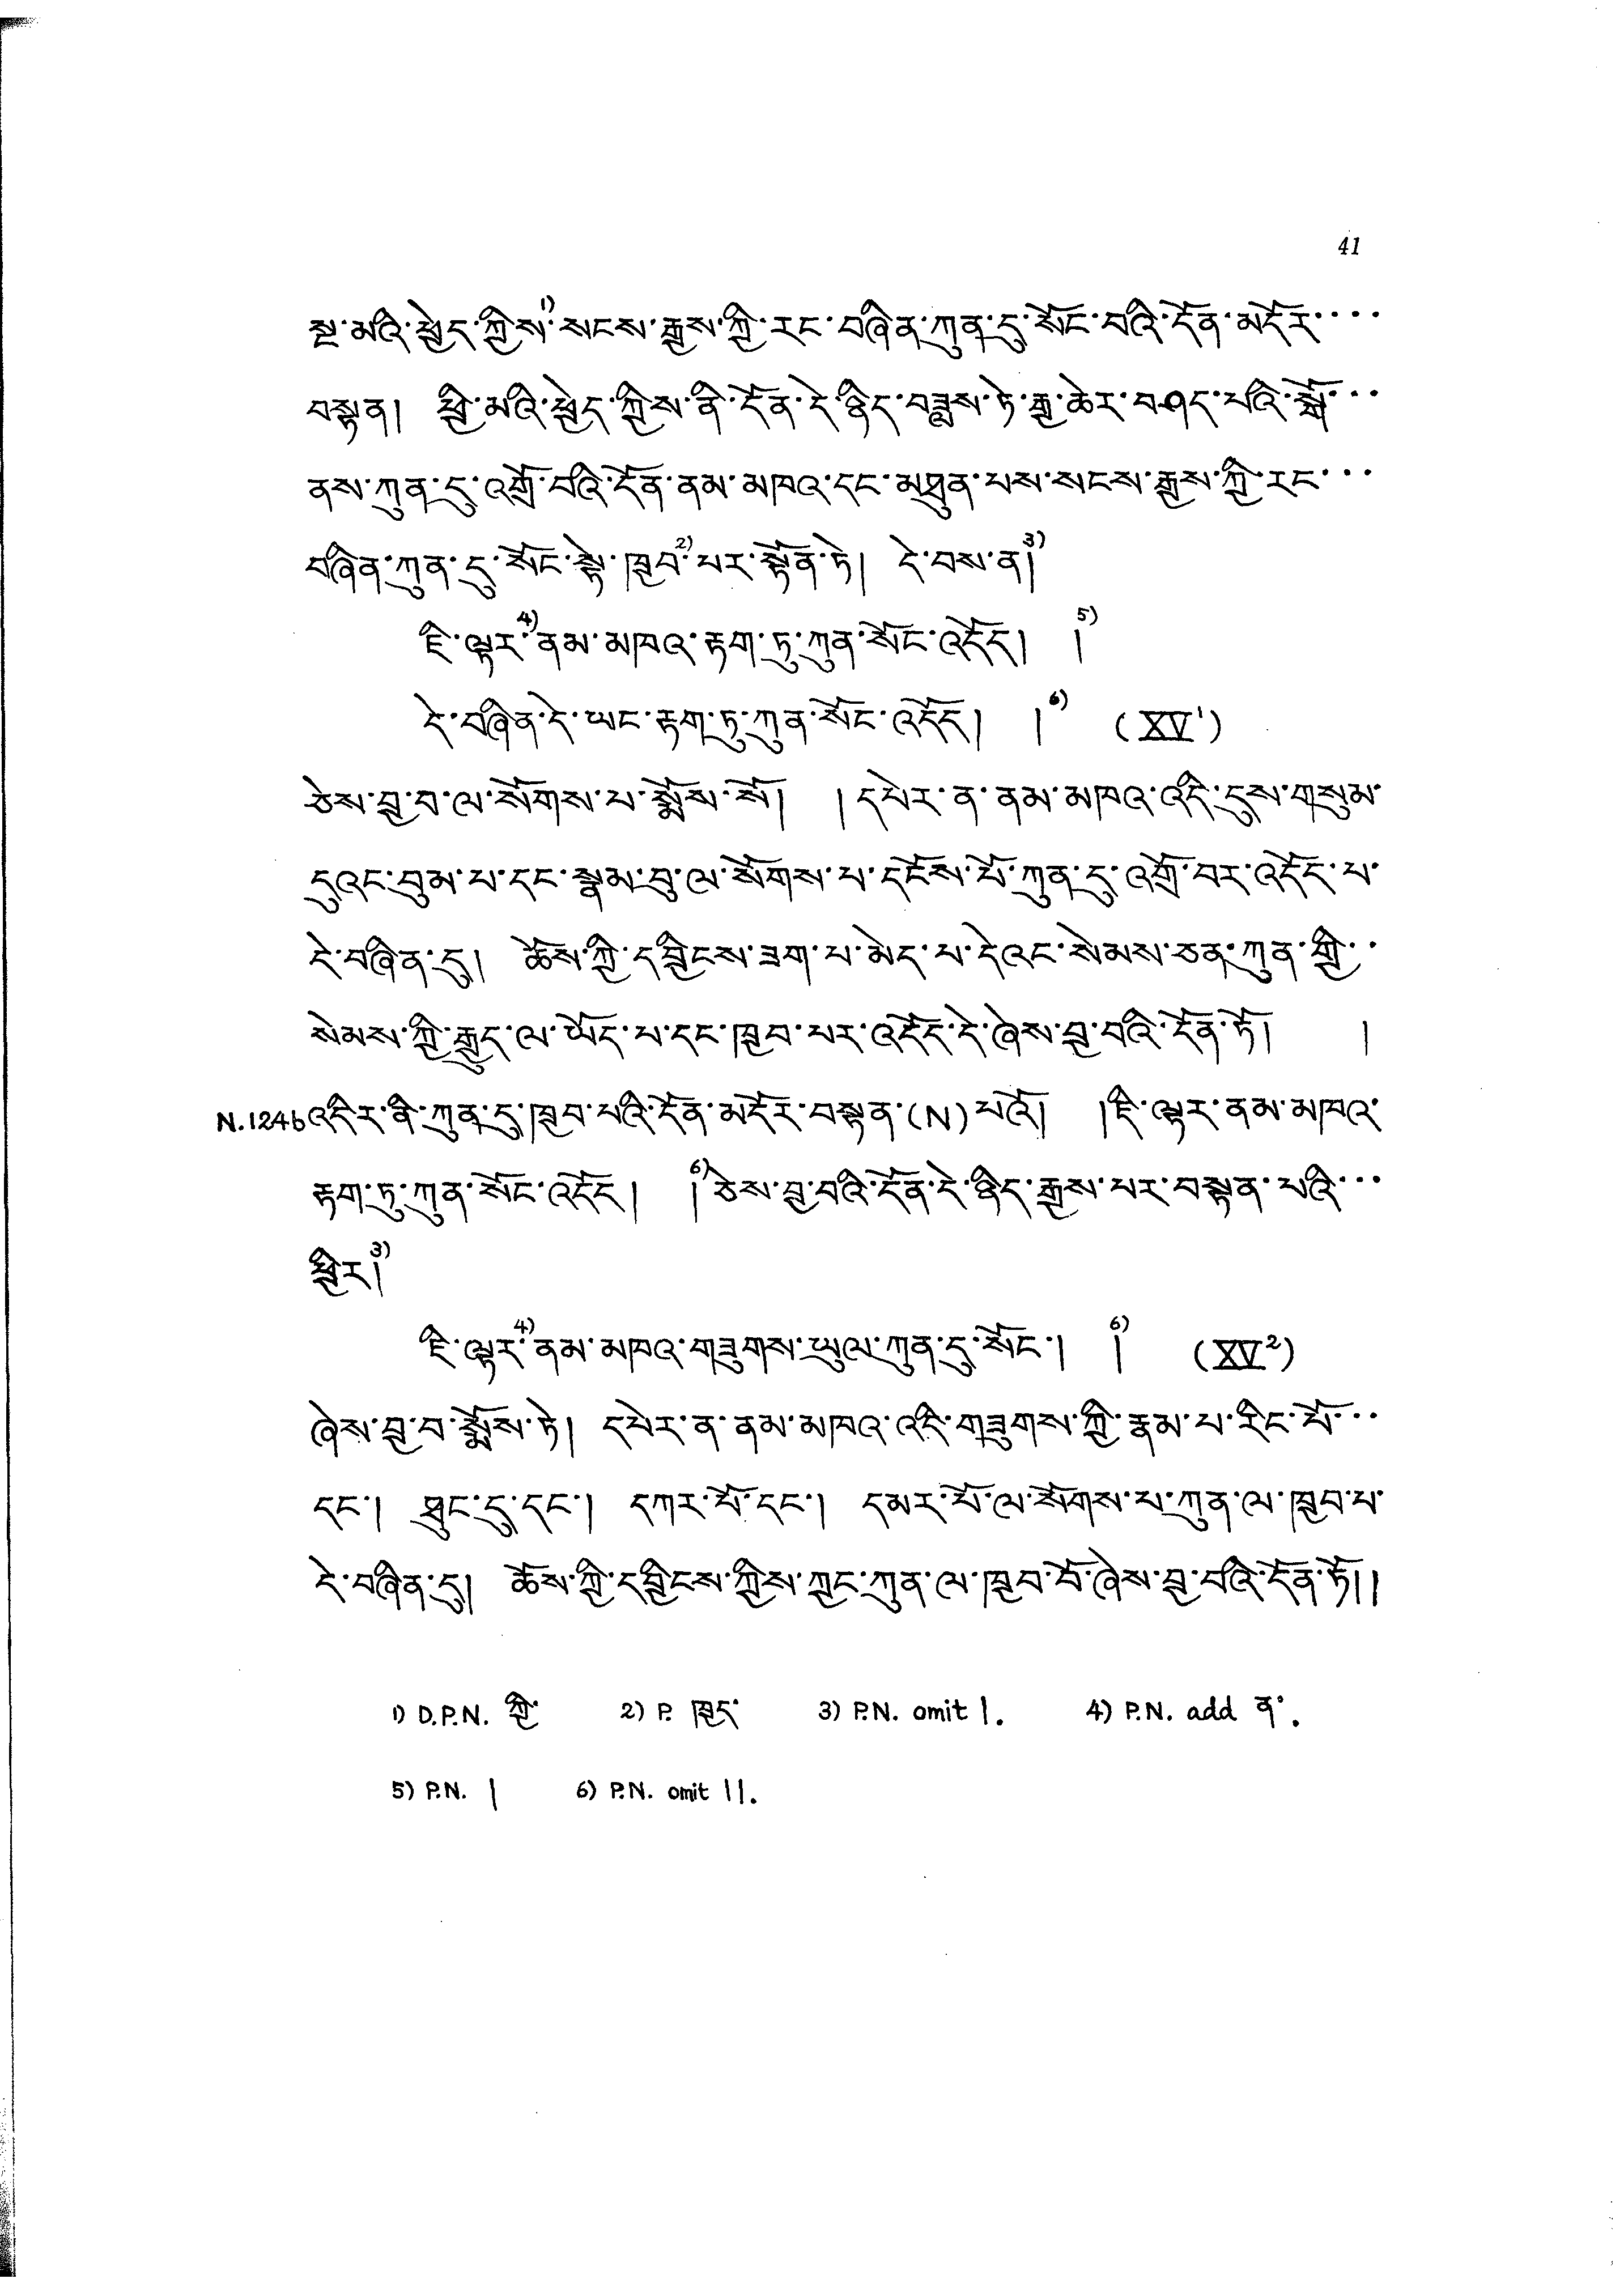 41
སྔ་མའི་ཕྱེད་ཀྱིས་1)སངས་རྒྱས་ཀྱི་རང་བཞིན་ཀུན་དུ་སོང་བའི་དོན་མདོར་····
བསྟན། ཕྱི་མའི་ཕྱེད་ཀྱིས་ནི་དོན་དེ་ཉིད་བཟླས་ཏེ་རྒྱ་ཆེར་བཤད་པའི་སྒོ་···
ནས་ཀུན་དུ་འགྲོ་བའི་དོན་ནམ་མཁའ་དང་མཐུན་པས་སངས་རྒྱས་ཀྱི་རང་···
བཞིན་ཀུན་དུ་སོང་སྟེ་ཁྱབ་2)པར་སྟོན་ཏེ། དེ་བས་ན།3)
ཇི་ལྟར་4)ནམ་མཁའ་རྟག་ཏུ་ཀུན་སོང་འདོད། །5)
དེ་བཞིན་དེ་ཡང་རྟག་ཏུ་ཀུན་སོང་འདོད། །6) (XV¹)
ཅེས་བྱ་བ་ལ་སོགས་པ་སྨོས་སོ། །དཔེར་ན་ནམ་མཁའ་འདི་དུས་གསུམ་
དུའང་བུམ་པ་དང་སྣམ་བུ་ལ་སོགས་པ་དངོས་པོ་ཀུན་དུ་འགྲོ་བར་འདོད་པ་
དེ་བཞིན་དུ། ཆོས་ཀྱི་དབྱིངས་ཟག་པ་མེད་པ་དེའང་སེམས་ཅན་ཀུན་གྱི་··
སེམས་ཀྱི་རྒྱུད་ལ་ཡོད་པ་དང་ཁྱབ་པར་འདོད་དེ་ཞེས་བྱ་བའི་དོན་ཏོ། །
N.124b འདིར་ནི་ཀུན་དུ་ཁྱབ་པའི་དོན་མདོར་བསྟན་(N)པའོ། །ཇི་ལྟར་ནམ་མཁའ་
རྟག་ཏུ་ཀུན་སོང་འདོད། །6)ཅེས་བྱ་བའི་དོན་དེ་ཉིད་རྒྱས་པར་བསྟན་པའི་···
ཕྱིར།3)
ཇི་ལྟར་4)ནམ་མཁའ་གཟུགས་ཡུལ་ཀུན་དུ་སོང་། །6) (XV²)
ཞེས་བྱ་བ་སྨོས་ཏེ། དཔེར་ན་ནམ་མཁའ་འདི་གཟུགས་ཀྱི་རྣམ་པ་རིང་པོ་···
དང་། ཐུང་དུ་དང་། དཀར་པོ་དང་། དམར་པོ་ལ་སོགས་པ་ཀུན་ལ་ཁྱབ་པ་
དེ་བཞིན་དུ། ཆོས་ཀྱི་དབྱིངས་ཀྱིས་ཀྱང་ཀུན་ལ་ཁྱབ་བོ་ཞེས་བྱ་བའི་དོན་ཏོ།།
1) D.P.N. ཀྱི་ 2) P. ཁྱད་ 3) P.N. omit །. 4) P.N. add ན་.
5) P.N. । 6) P.N. omit །།.